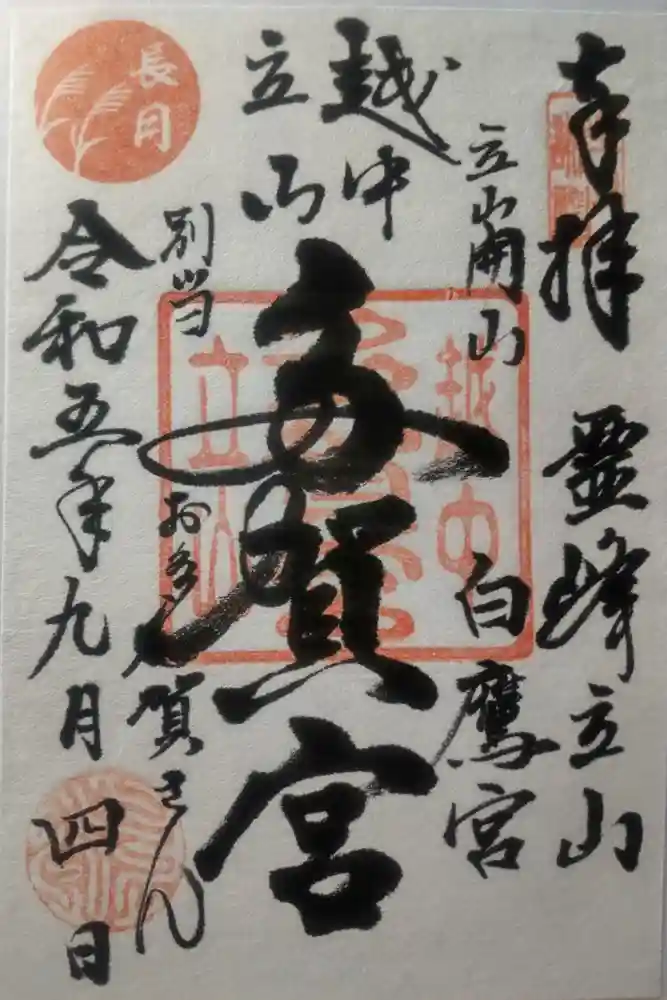 奉拝
霊峰立山
立山開山
白鷹宮
越中
立山
多賀宮
別当
お多賀さん
令和五年九月四日
長月
越中
立山